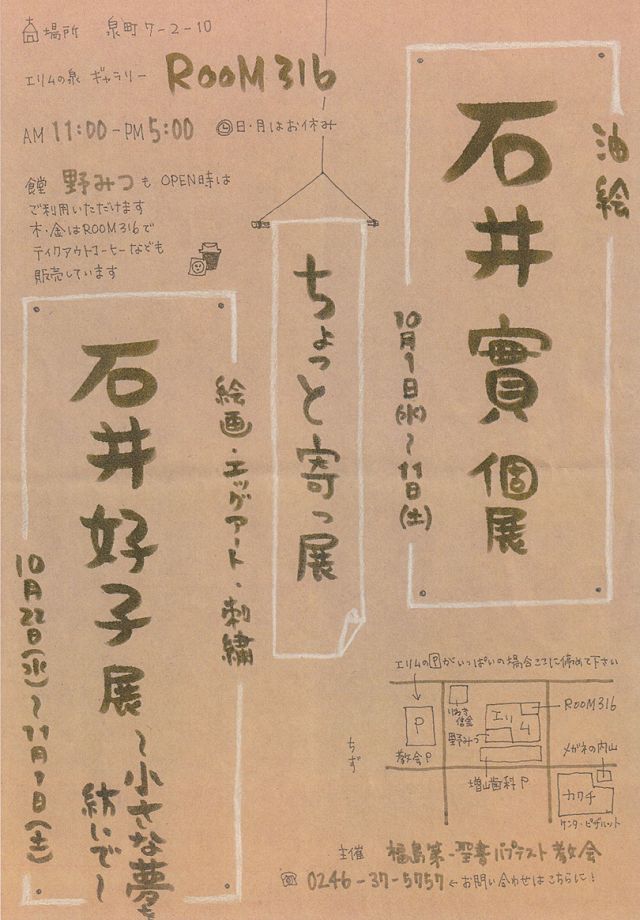 場所 泉町7-2-10
エリムの泉 ギャラリー ROOM316
AM 11:00-PM 5:00 日・月はお休み
食堂 野みつも OPEN時は
ご利用いただけます
木・金はROOM316で
テイクアウトコーヒーなども
販売しています
油絵
石井 實 個展
10月1日(水)〜11日(土)
ちょっと寄っ展
絵画・エッグアート・刺繍
石井好子展
〜小さな夢を
紡いで〜
10月22日(水)〜11月1日(土)
エリムのPがいっぱいの場合ここに停めて下さい
P
教会P
いわき
信金
エリム
野みつ
ROOM316
増山歯科P
メガネの内山
カワチ
ケンタ・ピザハット
ちず
主催 福島第一聖書バプテスト教会
0246-37-5757 ←お問い合わせはこちらに!